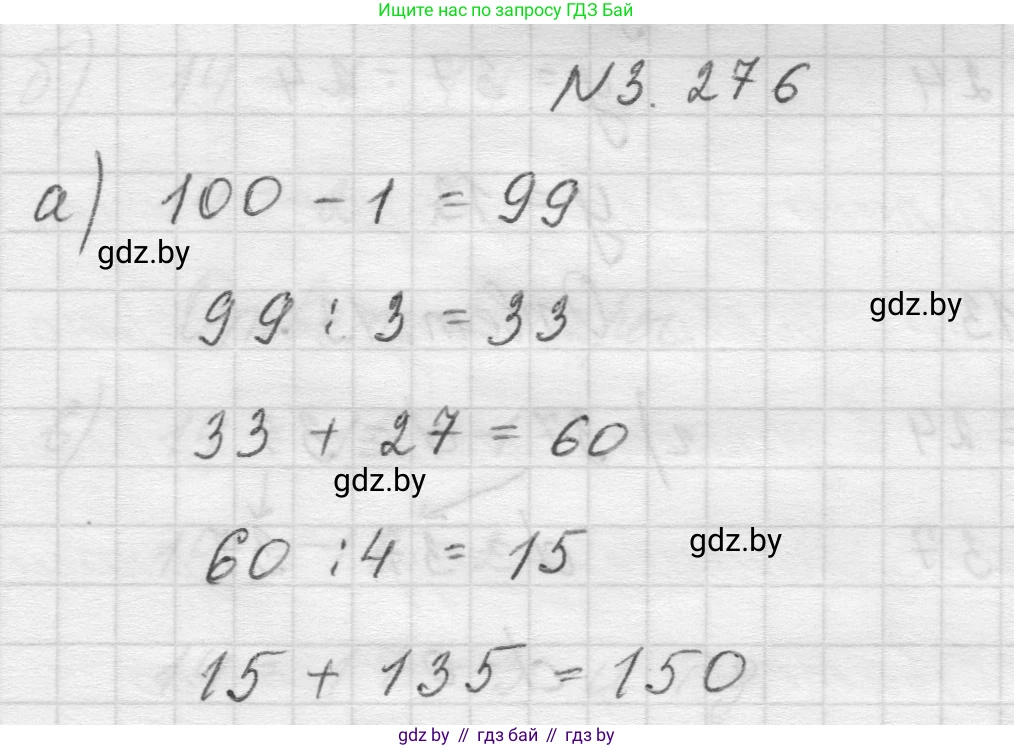 Ищите нас по запросу ГДЗ Бай
N 3. 276
а) 100 - 1 = 99
gdz.by
99 : 3 = 33
gdz.by
33 + 27 = 60
gdz.by
60 : 4 = 15
gdz.by
15 + 135 = 150
gdz by // гдз бай // гдз by